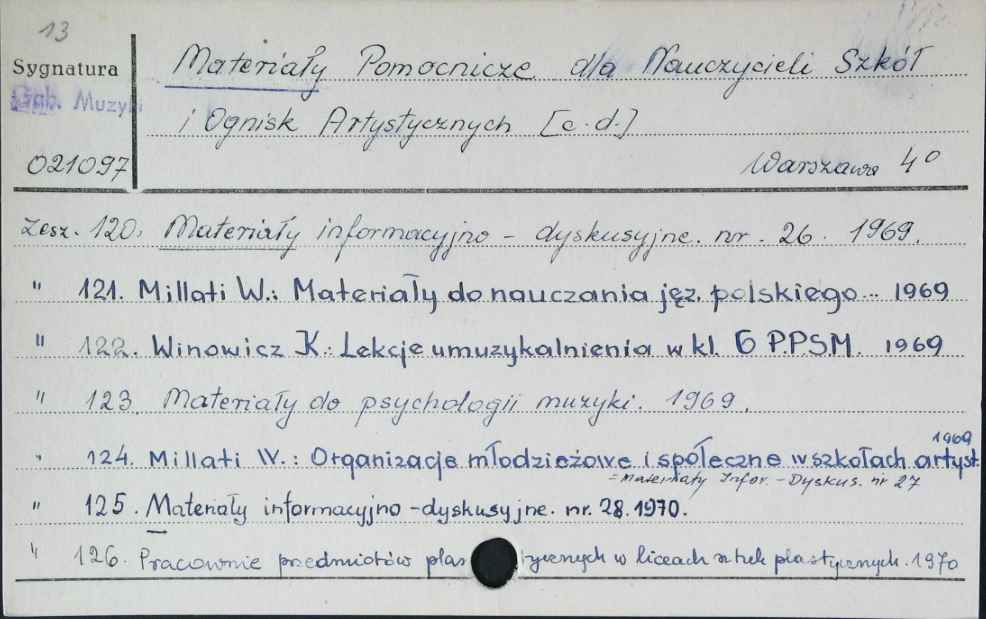 13
Sygnatura
Gab. Muzyki
021097
Materiały Pomocnicze dla Nauczycieli Szkół
i Ognisk Artystycznych [c.d.]
Warszawa 4°
Zesz. 120. Materiały informacyjno - dyskusyjne. nr. 26. 1969.
" 121. Millati W.: Materiały do nauczania jęz. polskiego... 1969
" 122. Winowicz K.: Lekcje umuzykalnienia w kl. 6 P.P.S.M. 1969
" 123. Materiały do psychologii muzyki. 1969.
" 124. Millati W.: Organizacje młodzieżowe i społeczne w szkołach artyst. 1969
= Materiały Infor. - Dyskus. nr 27
" 125. Materiały informacyjno-dyskusyjne. nr. 28. 1970.
" 126. Pracownie przedmiotów plas tycznych w liceach sztuk plastycznych. 1970